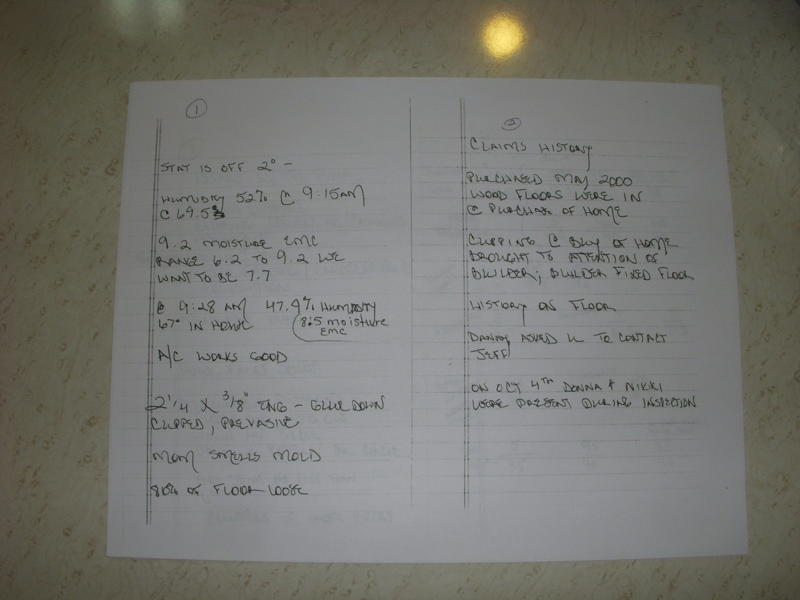 1
STAT IS OFF 2° -
HUMIDITY 52% @ 9:15AM
@ 69.5°
9.2 MOISTURE EMC
RANGE 6.2 TO 9.2 WE
WANT TO BE 7.7
@ 9:28 AM 47.9% HUMIDITY
67° IN HOUSE
8.5 moisture
EMC
A/C WORKS GOOD
2 1/4 X 3/8" ENG - GLUE DOWN
CUPPED, PREVASIVE
MOM SMELLS MOLD
80% OF FLOOR LOOSE
2
CLAIMS HISTORY
PURCHASED MAY 2000
WOOD FLOORS WERE IN
@ PURCHASE OF HOME
CUPPING @ BUY OF HOME
BROUGHT TO ATTENTION OF
BUILDER; BUILDER FIXED FLOOR
HISTORY ON FLOOR
ASKED TO CONTACT
JEFF
ON OCT 4TH DONNA & NIKKI
WERE PRESENT DURING INSPECTION